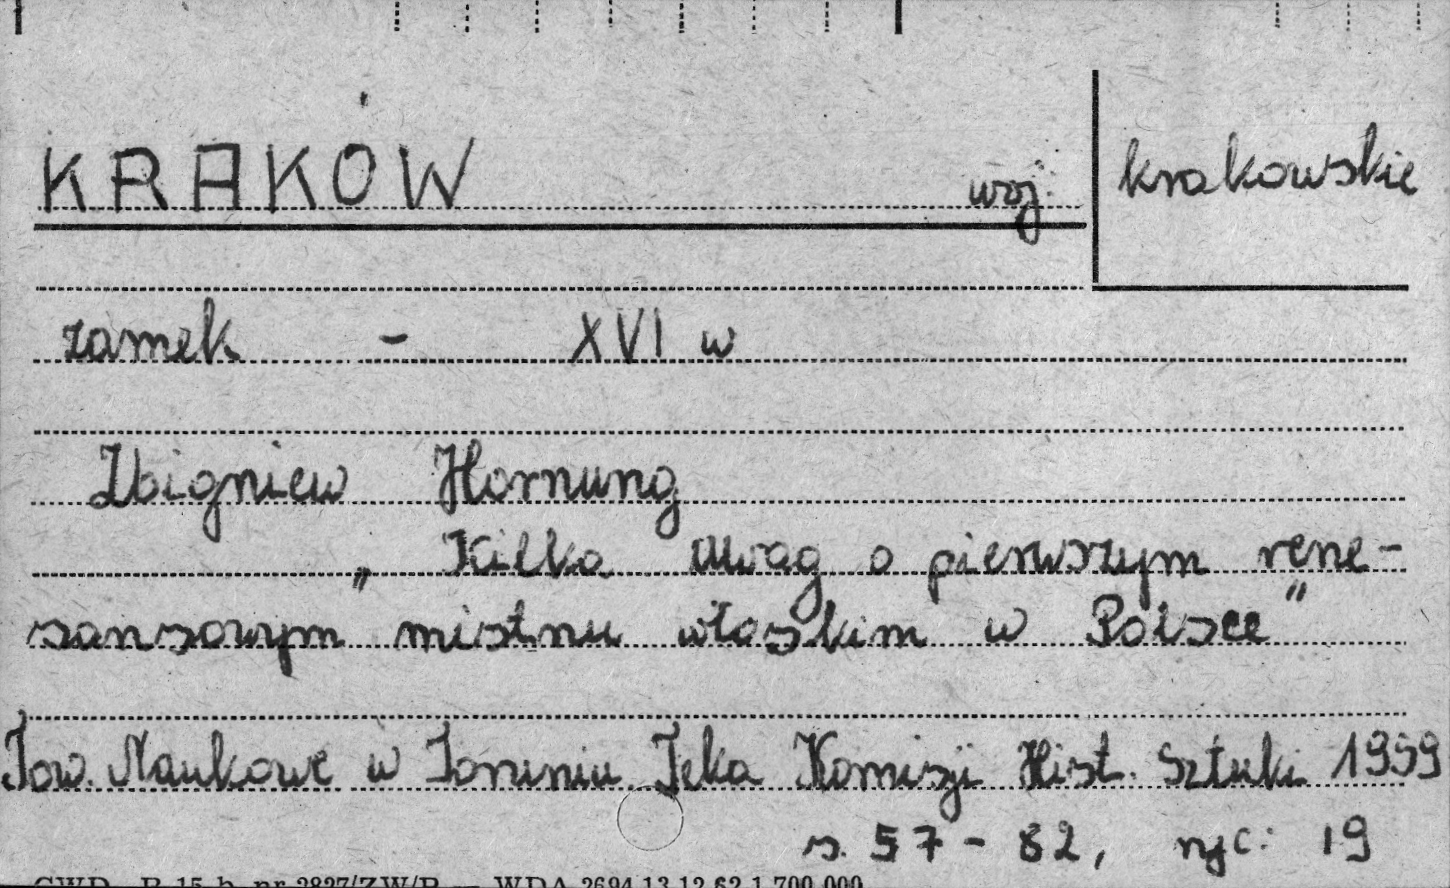 KRAKÓW woj. krakowskie
zamek - XVI w
Zbigniew Hornung
„Kilka uwag o pierwszym rene-
sansowym mistrzu włoskim w Polsce"
Tow. Naukowe w Toruniu Teka Komisji Hist. Sztuki 1959
s. 57 - 82, ryc: 19